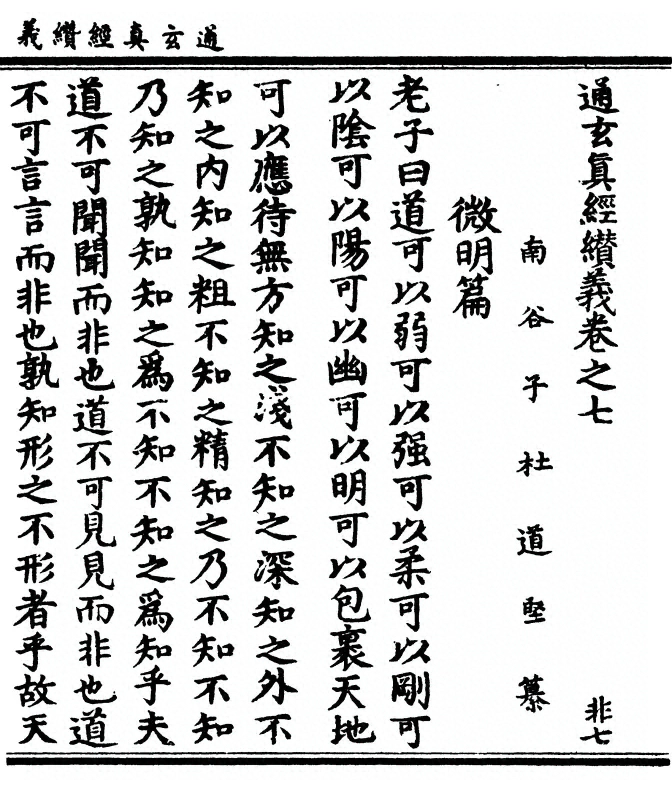 通玄真經纘義
通玄真經纘義卷之七
非七
南谷子杜道堅纂
微明篇
老子曰道可以弱可以强可以柔可以剛可
以陰可以陽可以幽可以明可以包裹天地
可以應待無方知之淺不知之深知之外不
知之内知之粗不知之精知之乃不知不知
乃知之孰知知之爲不知不知之爲知乎夫
道不可聞聞而非也道不可見見而非也道
不可言言而非也孰知形之不形者乎故天